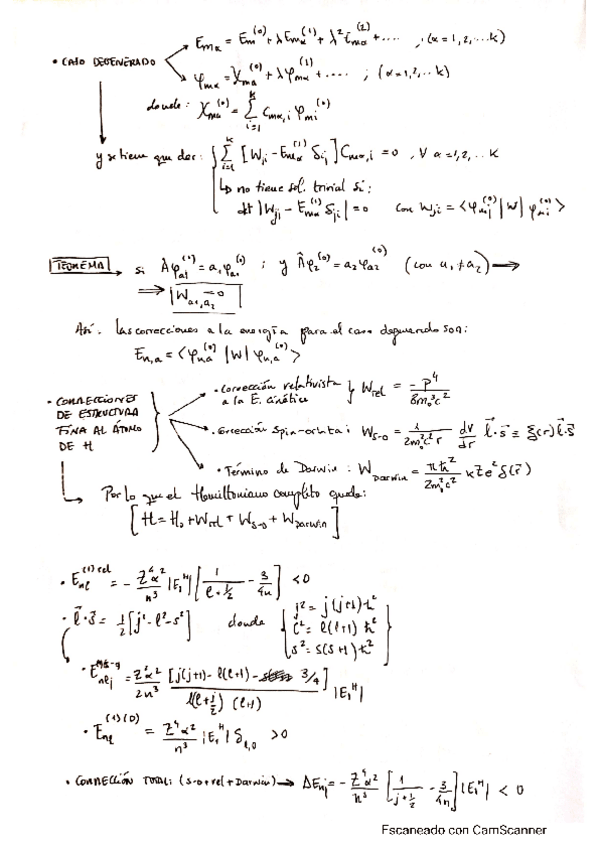 E_{mα} = E_m^{(0)} + λE_{mα}^{(1)} + λ²E_{mα}^{(2)} + ..... , (α=1,2,...k)
• CASO DEGENERADO
φ_{mα} = χ_{mα}^{(0)} + λφ_{mα}^{(1)} + ..... ; (α=1,2,..k)
donde: χ_{mα}^{(0)} = Σ_{i=1}^{k} C_{mα,i} φ_{mi}^{(0)}
y se tiene que dar: Σ_{i=1}^{k} [W_{ji} - E_{mα}^{(1)} δ_{ij}] C_{mα,i} = 0 , ∀ α=1,2,.. k
↳ no tiene sol. trivial si:
det |W_{ji} - E_{mα}^{(1)} δ_{ji}| = 0 con W_{ji} = <φ_{mj}^{(0)} |W| φ_{mi}^{(0)}>
TEOREMA → si Âφ_{a1}^{(0)} = a₁φ_{a1}^{(0)} ; y Âφ_2^{(0)} = a₂φ_{a2}^{(0)} (con a₁ ≠ a₂) →
⇒ W_{a1,a2} = 0
Así, las correcciones a la energía para el caso degenerado son:
E_{n,a} = <φ_{n,a}^{(0)} |W| φ_{n,a}^{(0)}>
• CORRECCIONES DE ESTRUCTURA FINA AL ÁTOMO DE H
• Corrección relativista a la E. cinética } W_{rel} = -p⁴ / 8m₀³c²
• Corrección Spin-orbita: W_{S-O} = 1/(2m₀²c²r) dV/dr l⃗·s⃗ ≡ ξ(r) l⃗·s⃗
• Término de Darwin: W_{Darwin} = πħ²/(2m₀²c²) kZe² δ(r⃗)
↳ Por lo que el Hamiltoniano completo queda:
[H = H₀ + W_{rel} + W_{S-O} + W_{Darwin}]
• E_{nl}^{(1) rel} = - Z⁴α²/n³ |E₁^H| [1/(l+½) - 3/4n] < 0
• l⃗·s⃗ = ½[j² - l² - s²] donde { j² = j(j+1)ħ²
l² = l(l+1) ħ²
s² = s(s+1) ħ² }
= Z⁴α²/2n³ [j(j+1) - l(l+1) - 3/4] / l(l+½)(l+1) |E₁^H|
• E_{nl}^{(1)(D)} = Z⁴α²/n³ |E₁^H| δ_{l,0} > 0
• CORRECCIÓN TOTAL: (S-O+rel+Darwin) → ΔE_{nj} = - Z⁴α²/n³ [1/(j+½) - 3/4n] |E₁^H| < 0
Escaneado con CamScanner